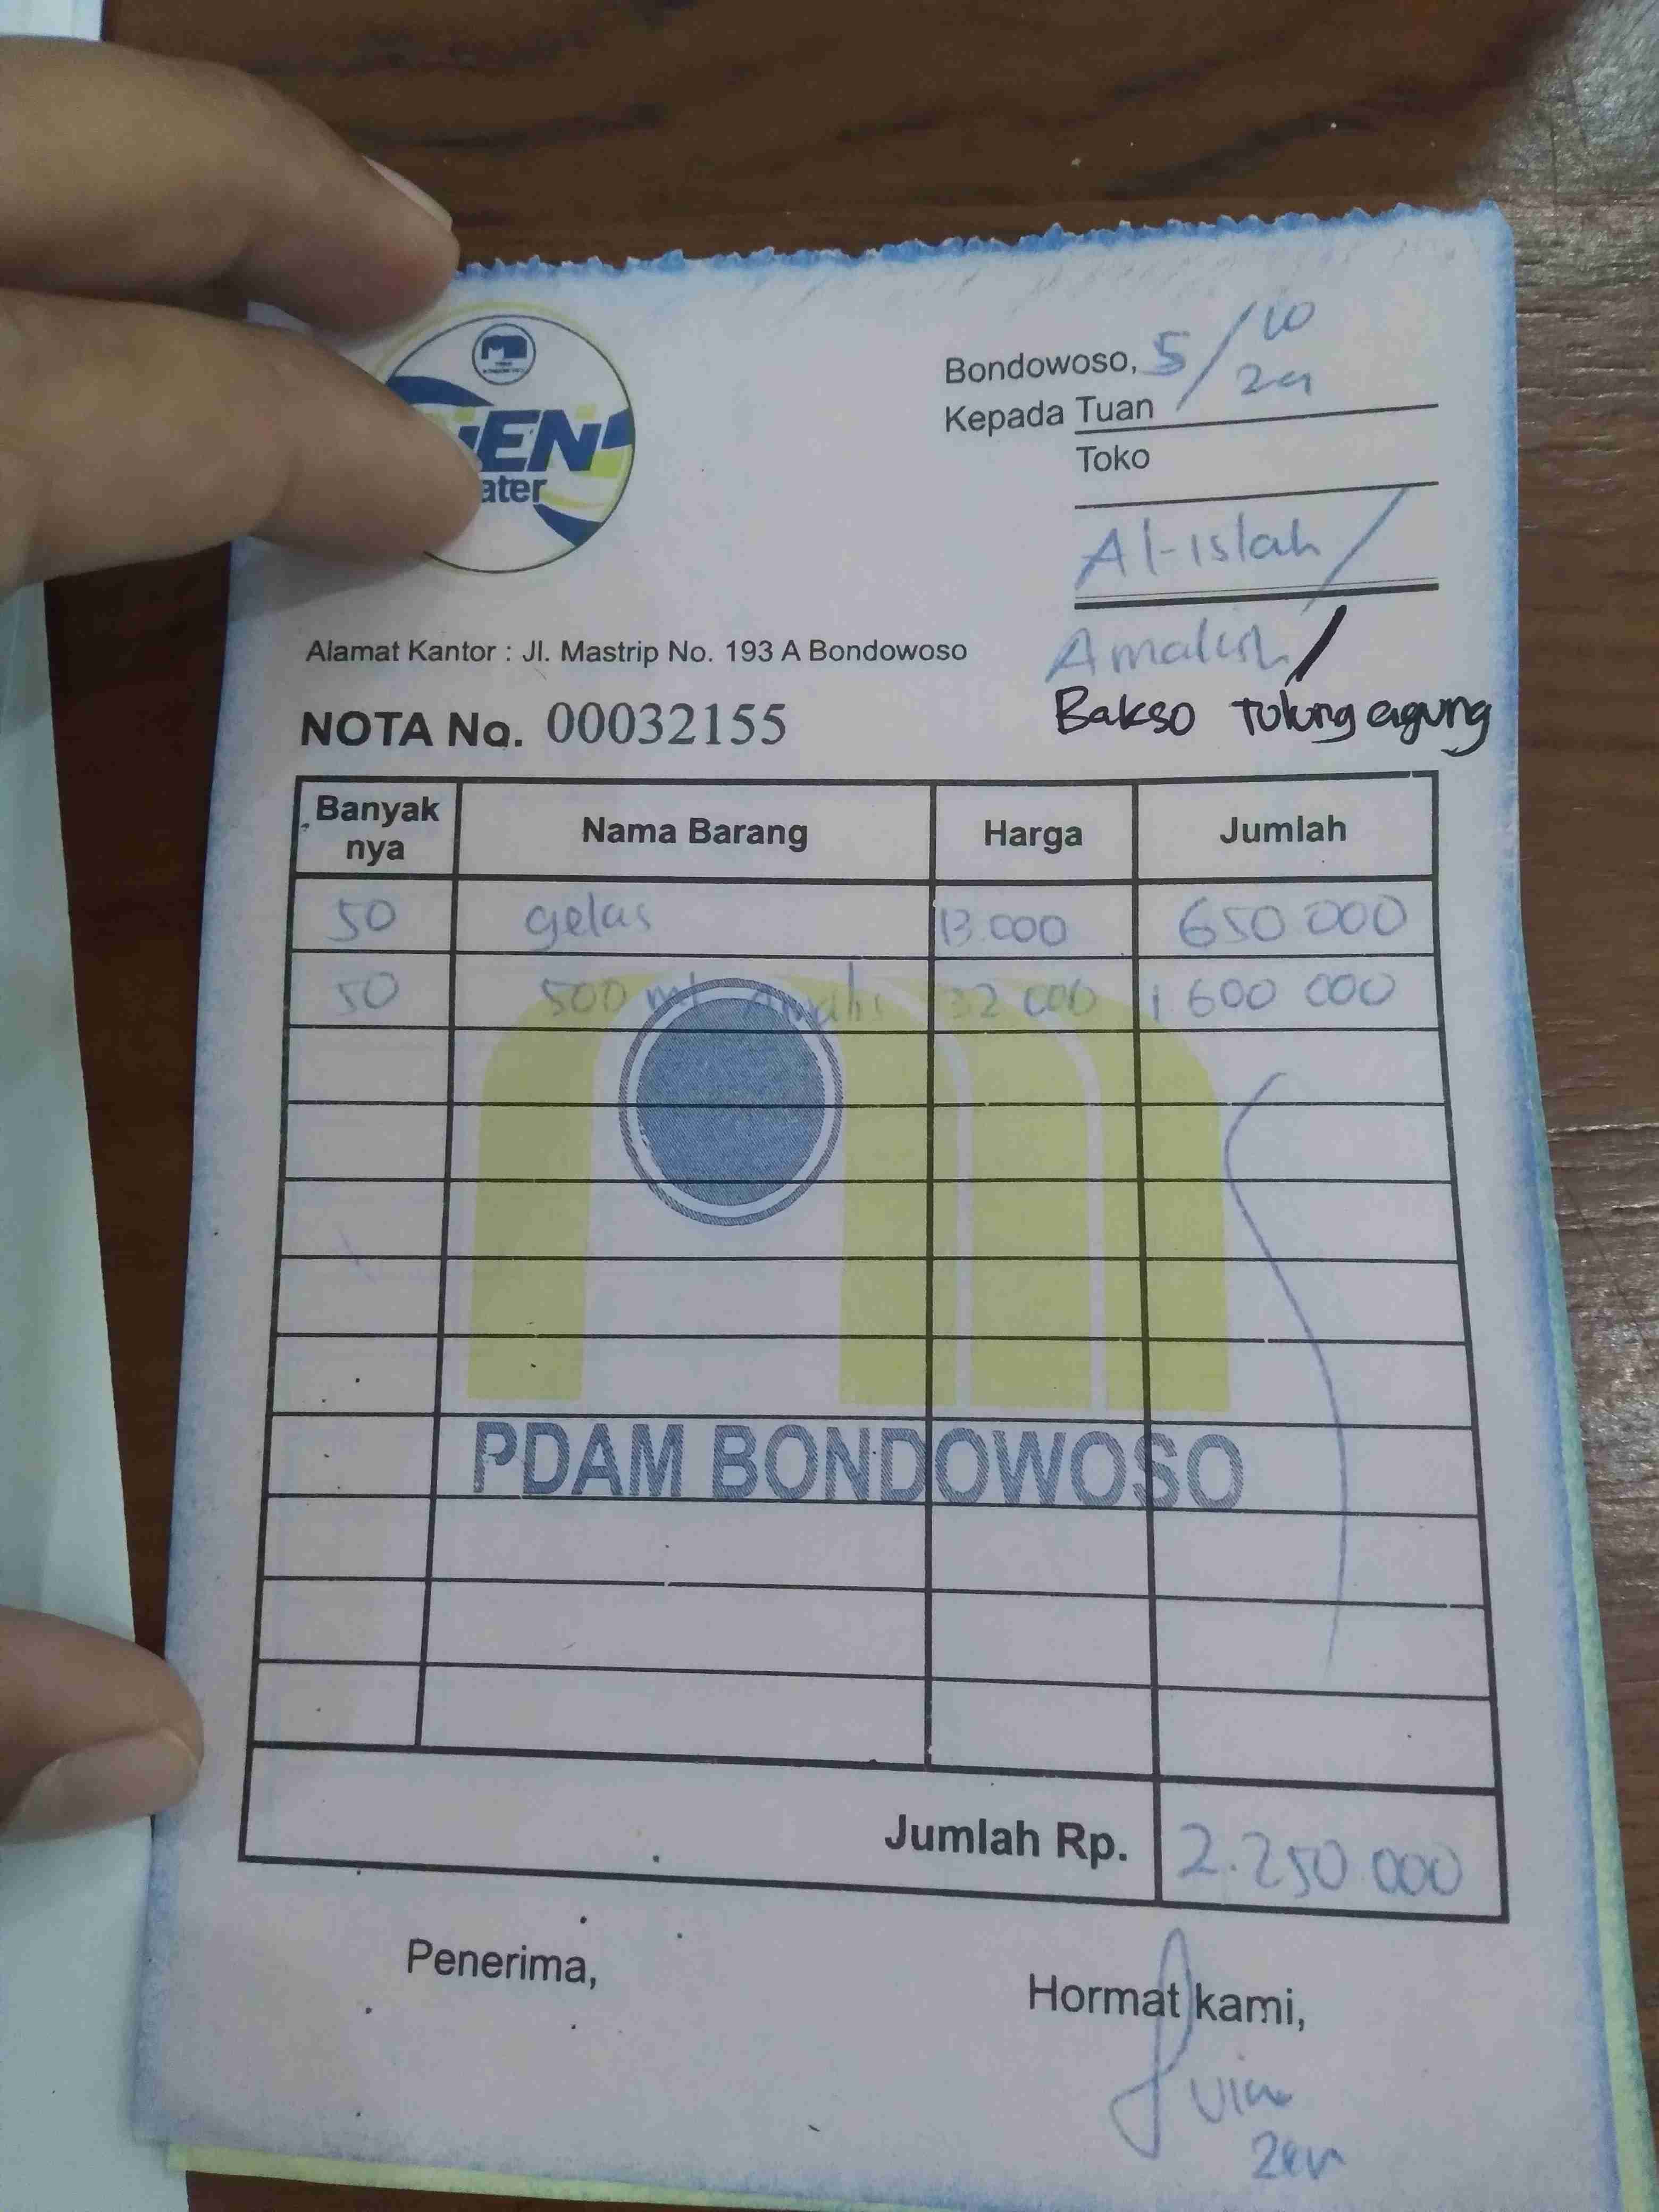 EN
ater
Bondowoso, 5/10
24
Kepada Tuan
Toko
Al-Islah /
Amalis /
Bakso Tulungagung
Alamat Kantor : Jl. Mastrip No. 193 A Bondowoso
NOTA No. 00032155
Banyak nya Nama Barang Harga Jumlah
50 gelas 13.000 650 000
50 500 ml Amalis 32 000 1 600 000
PDAM BONDOWOSO
Jumlah Rp. 2.250 000
Penerima,
Hormat kami,